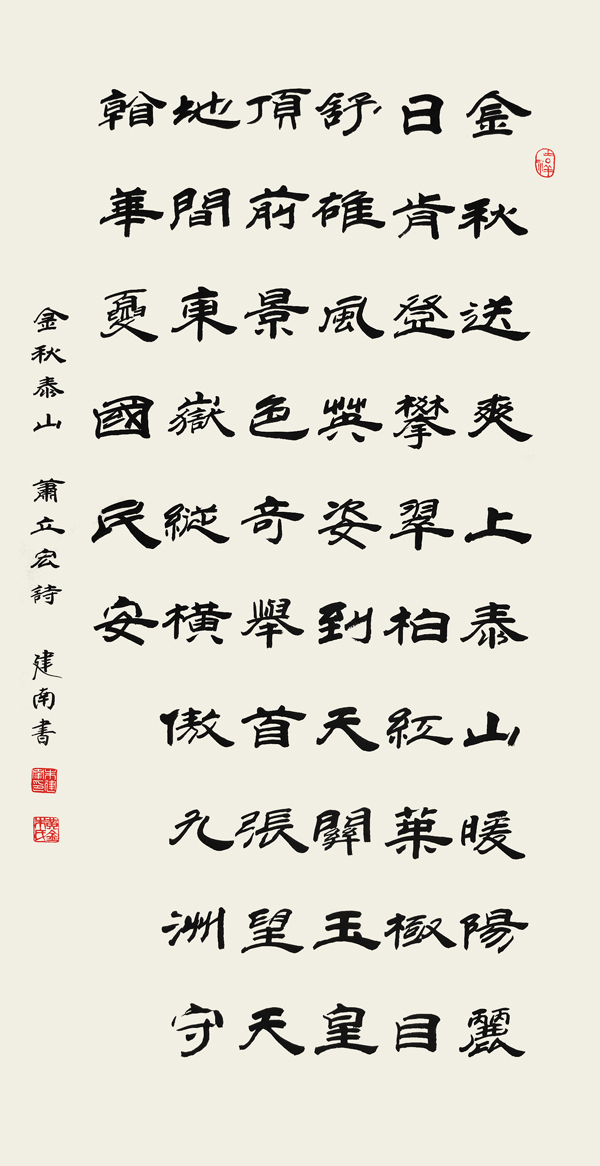 金秋送爽上泰山暖陽麗
日肯登攀翠柏紅葉極目
舒雄風英姿到天關玉皇
頂前景色奇舉首張望天
地間東嶽縱橫傲九洲守
華夏國民安
金秋泰山 蕭立宏詩 建南書
吉祥